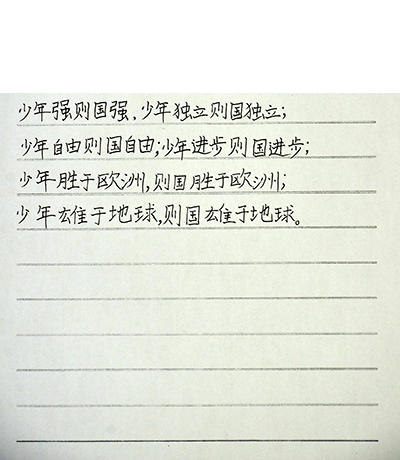 少年强则国强，少年独立则国独立；
少年自由则国自由；少年进步则国进步；
少年胜于欧洲，则国胜于欧洲；
少年雄于地球，则国雄于地球。